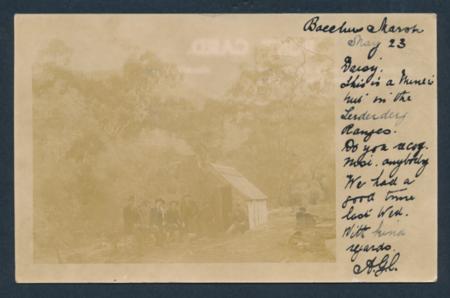 Bacchus Marsh
May 23
Daisy,
This is a Miner's
hut in the
Lerderderg
Ranges.
Do you recog
nise anybody
We had a
good time
last Wed.
With kind
regards.
POST CARD